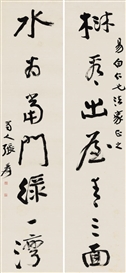 易白仁兄法家正之
樹出屋青三面
水當門綠一灣
蜀人張爰